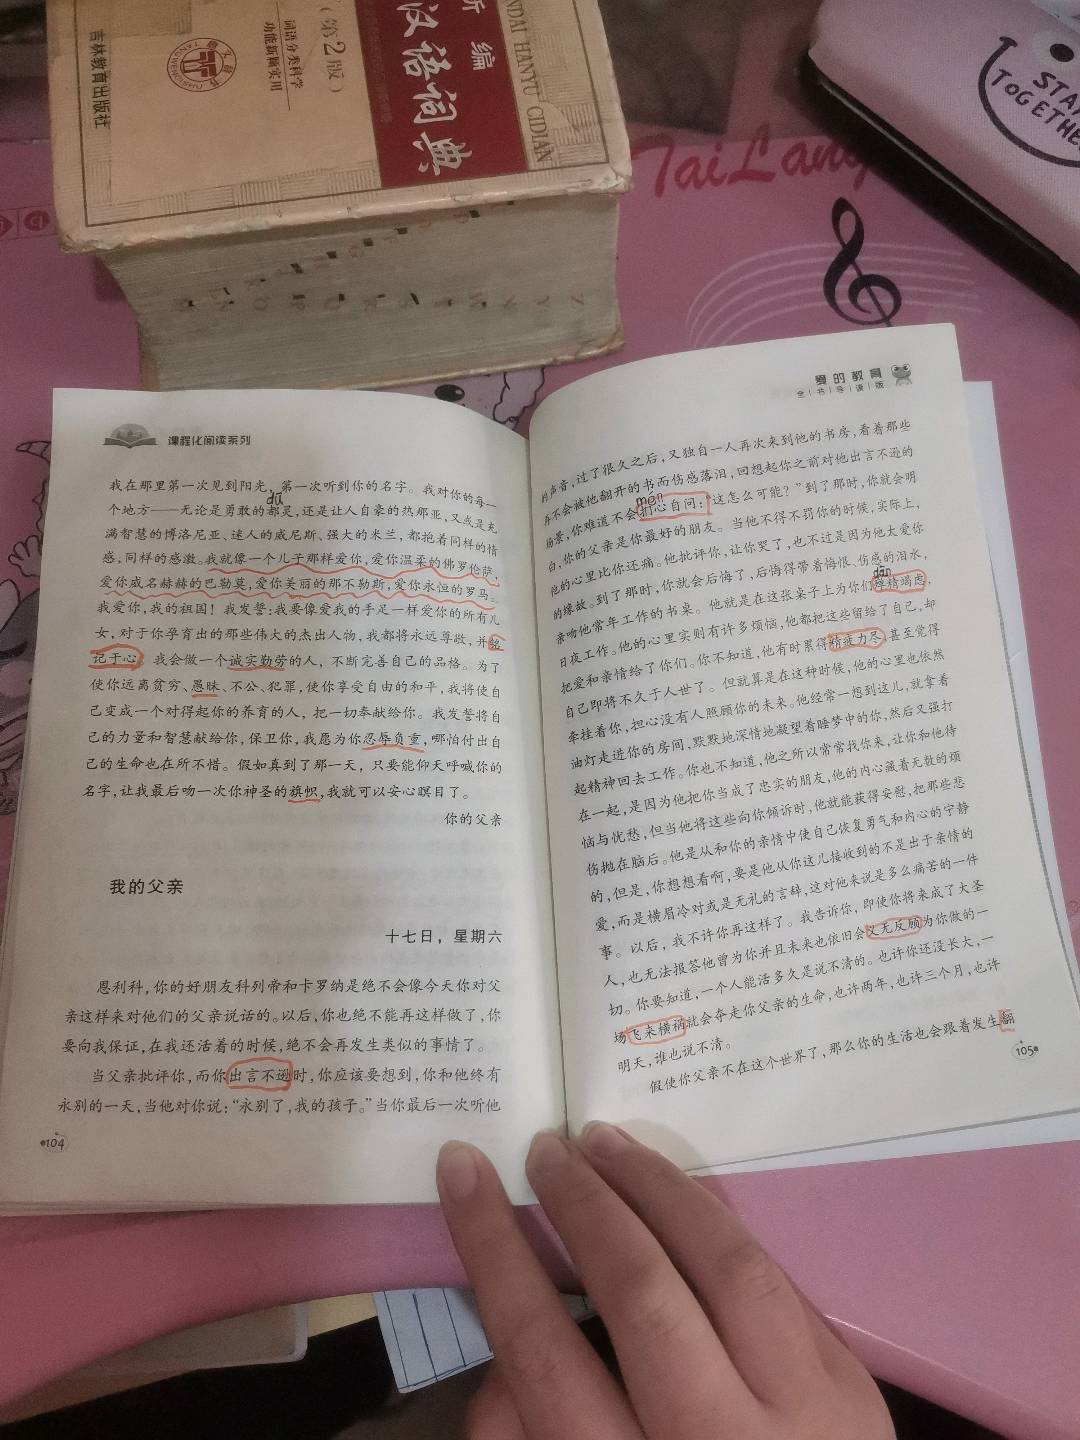 新编
汉语词典
XIANDAI HANYU CIDIAN
(第2版)
词语分类科学
功能新颖实用
吉林教育出版社
TaiLang
STAY
TOGETHER
课程化阅读系列
我在那里第一次见到阳光,第一次听到你的名字。我对你的每一
dū
个地方——无论是勇敢的都灵,还是让人自豪的热那亚,又或是充
满智慧的博洛尼亚、迷人的威尼斯、强大的米兰,都抱着同样的情
感,同样的感激。我就像一个儿子那样爱你,爱你温柔的佛罗伦萨,
爱你威名赫赫的巴勒莫,爱你美丽的那不勒斯,爱你永恒的罗马。
我爱你,我的祖国!我发誓:我要像爱我的手足一样爱你的所有儿
女,对于你孕育出的那些伟大的杰出人物,我都将永远尊敬,并铭
记于心。我会做一个诚实勤劳的人,不断完善自己的品格。为了
使你远离贫穷、愚昧、不公、犯罪,使你享受自由的和平,我将使自
己变成一个对得起你的养育的人,把一切奉献给你。我发誓将自
己的力量和智慧献给你,保卫你,我愿为你忍辱负重,哪怕付出自
己的生命也在所不惜。假如真到了那一天,只要能仰天呼喊你的
名字,让我最后吻一次你神圣的旗帜,我就可以安心瞑目了。
你的父亲
我的父亲
十七日,星期六
恩利科,你的好朋友科列帝和卡罗纳是绝不会像今天你对父
亲这样来对他们的父亲说话的。以后,你也绝不能再这样做了,你
要向我保证,在我还活着的时候,绝不会再发生类似的事情了。
当父亲批评你,而你出言不逊时,你应该要想到,你和他终有
永别的一天,当他对你说:“永别了,我的孩子。”当你最后一次听他
104
爱的教育
全书导读版
的声音,过了很久之后,又独自一人再次来到他的书房,看着那些
再不会被他翻开的书而伤感落泪,回想起你之前对他出言不逊的
mén
场景,你难道不会扪心自问:“这怎么可能?”到了那时,你就会明
白,你的父亲是你最好的朋友。当他不得不罚你的时候,实际上,
他的心里比你还痛。他批评你,让你哭了,也不过是因为他太爱你
的缘故。到了那时,你就会后悔了,后悔得带着悔恨、伤感的泪水,
dān
亲吻他常年工作的书桌。他就是在这张桌子上为你们殚精竭虑,
日夜工作。他的心里实则有许多烦恼,他都把这些留给了自己,却
把爱和亲情给了你们。你不知道,他有时累得精疲力尽,甚至觉得
自己即将不久于人世了。但就算是在这种时候,他的心里也依然
牵挂着你,担心没有人照顾你的未来。他经常一想到这儿,就拿着
油灯走进你的房间,默默地深情地凝望着睡梦中的你,然后又强打
起精神回去工作。你也不知道,他之所以常常找你来,让你和他待
在一起,是因为他把你当成了忠实的朋友,他的内心藏着无数的烦
恼与忧愁,但当他将这些向你倾诉时,他就能获得安慰,把那些悲
伤抛在脑后。他是从和你的亲情中使自己恢复勇气和内心的宁静
的,但是,你想想看啊,要是他从你这儿接收到的不是出于亲情的
爱,而是横眉冷对或是无礼的言辞,这对他来说是多么痛苦的一件
事。以后,我不许你再这样了。我告诉你,即使你将来成了大圣
人,也无法报答他曾为你并且未来也依旧会义无反顾为你做的一
切。你要知道,一个人能活多久是说不清的。也许你还没长大,一
场飞来横祸就会夺走你父亲的生命,也许两年,也许三个月,也许
明天,谁也说不清。
假使你父亲不在这个世界了,那么你的生活也会跟着发生翻
105